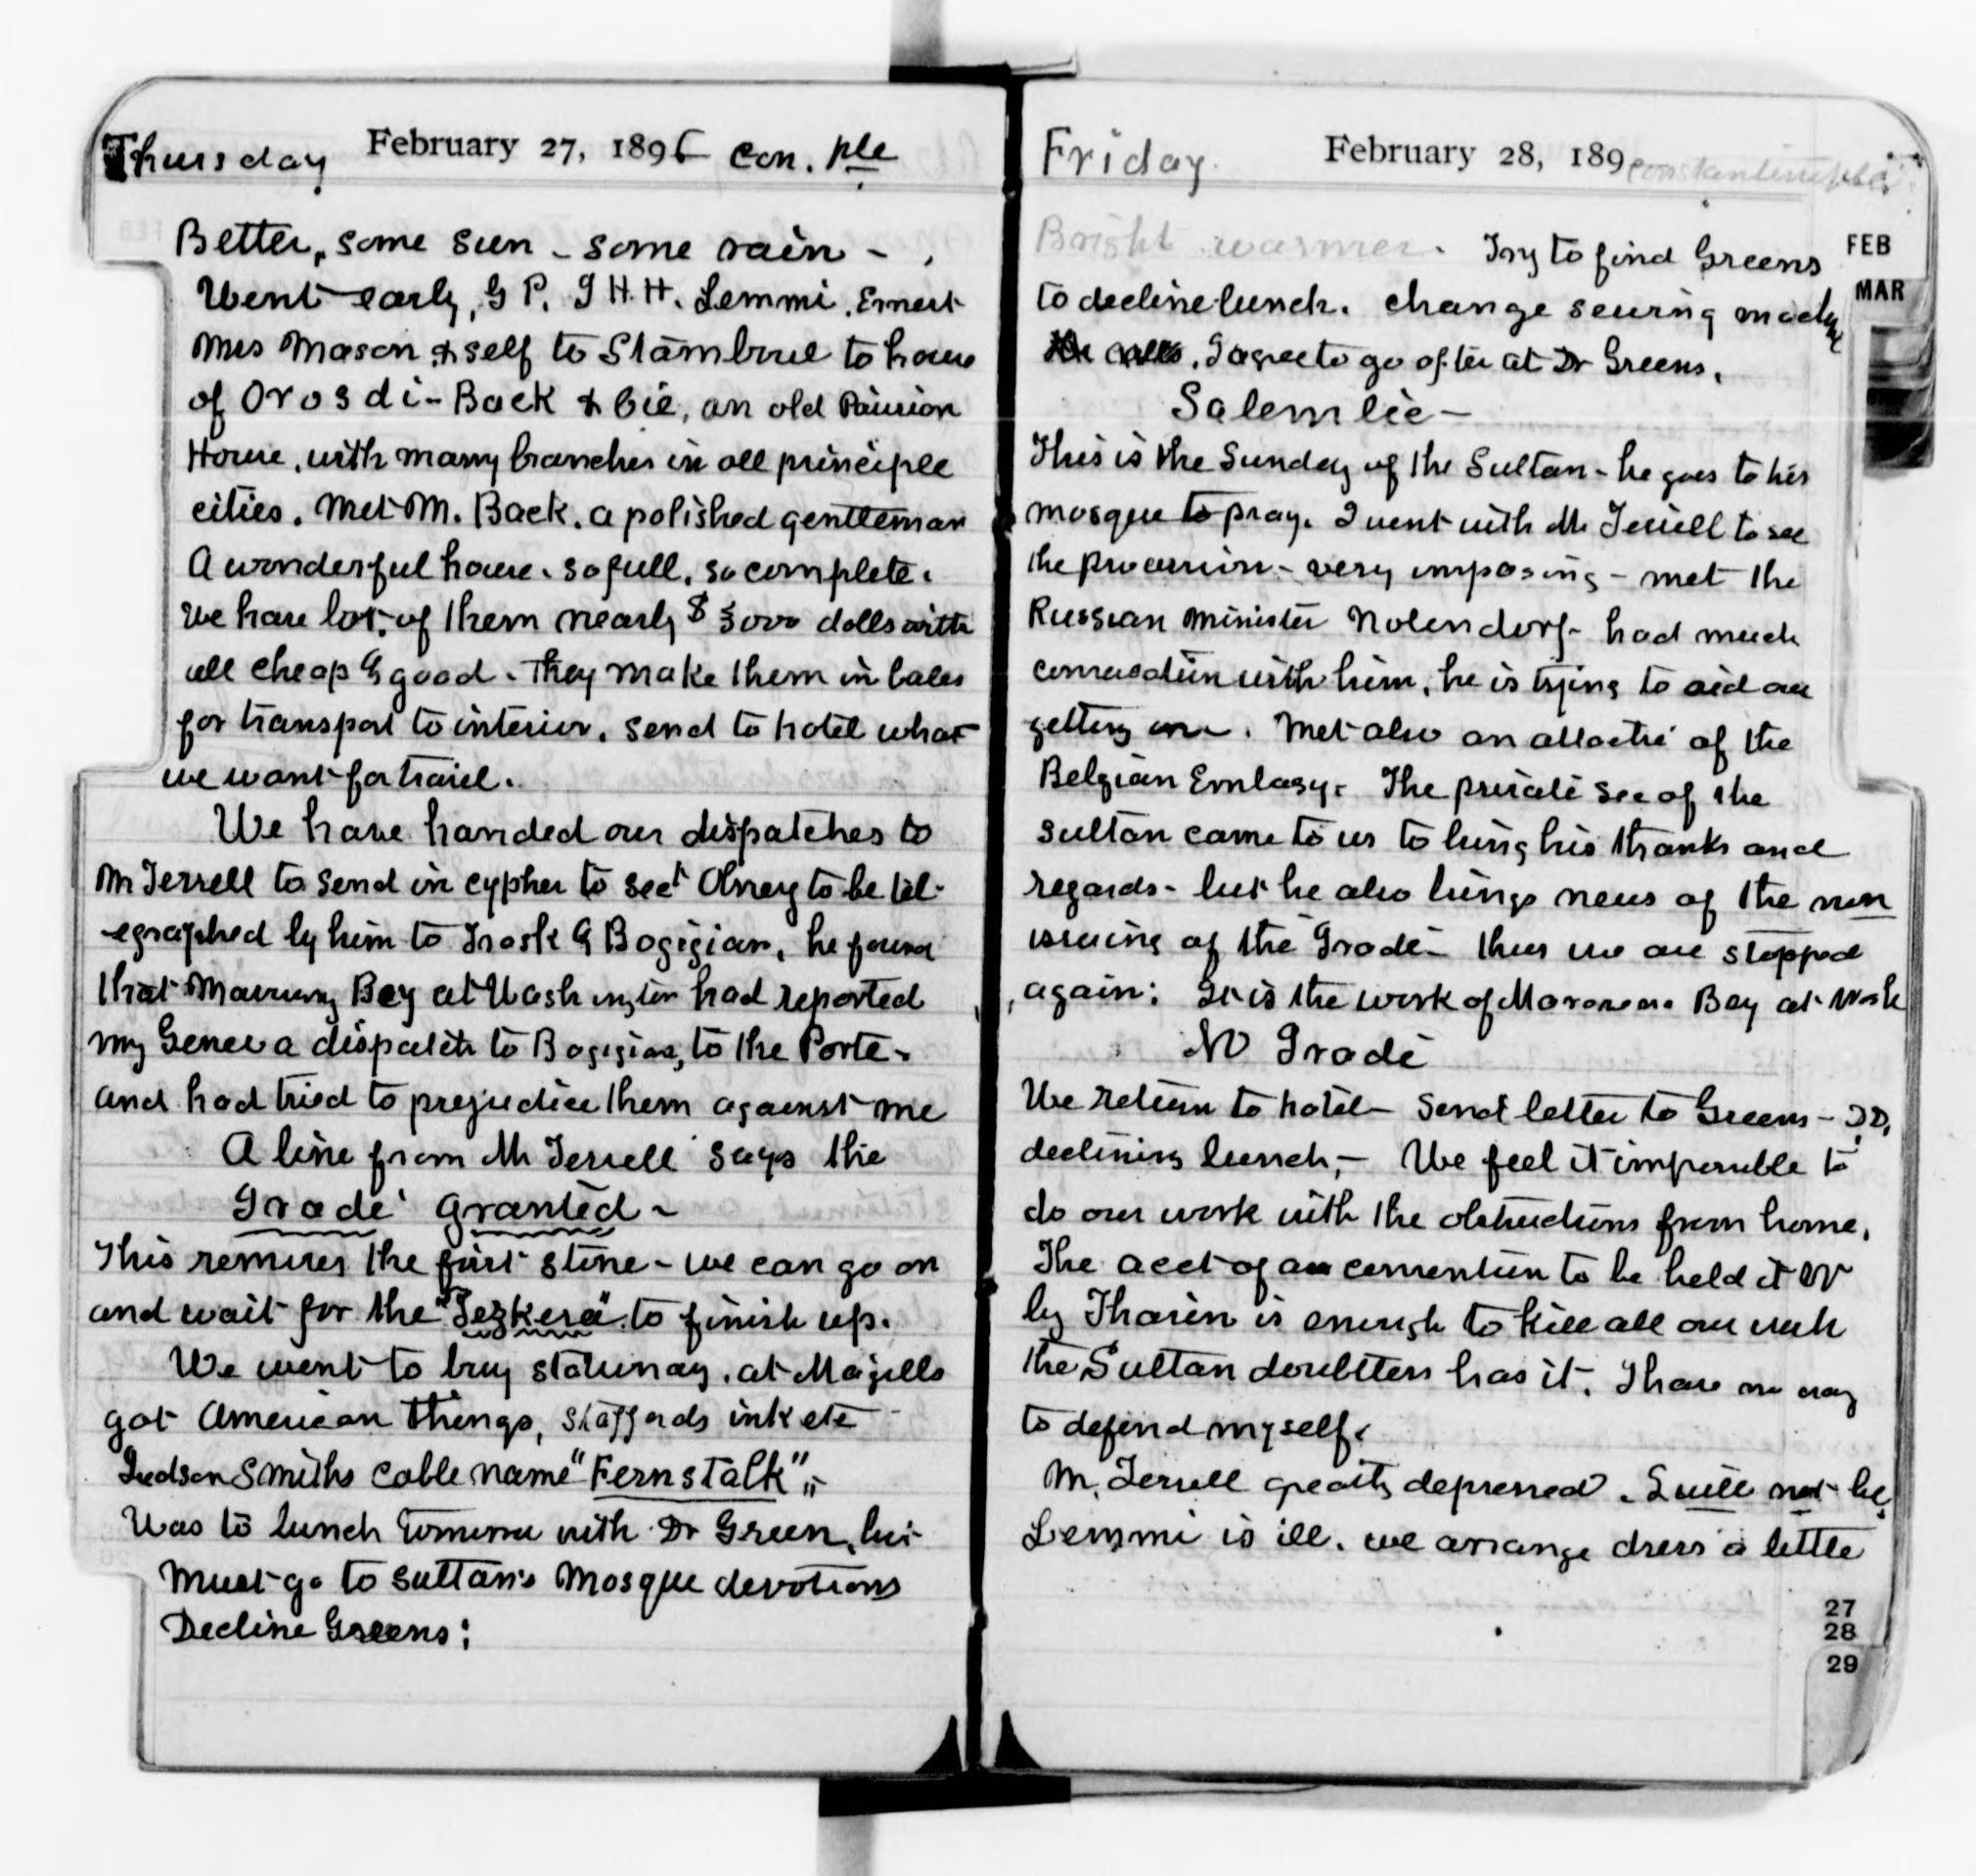 Thursday February 27, 1896 Con.ple
Better, some sun - some rain -
Went early, G P. I H. H. Lemmi, Ernest
Mrs Mason & self to Stamboul to house
of Orosdi-Back & Cie, an old Parision
House, with many branches in all principle
cities. Met M. Back, a polished gentleman
A wonderful house. so full, so complete.
We have lots of them nearly $ 3000 dolls with
all cheap & good. They make them in bales
for transport to interior. send to hotel what
we want for travel.
We have handed our dispatches to
Mr Terrell to send in cypher to Sect Olney to be tel-
-egraphed by him to Trask & Bogigian, he found
that Mavroney Bey at Washington had reported
my Geneva dispatch to Bogigian, to the Porte -
and had tried to prejudice them against me
A line from Mr Terrell says the
Irade' granted -
This removes the first stone - we can go on
and wait for the "Tezkera" to finish up.
We went to buy stationary, at Magells
got American things, Staffords ink etc
Judson Smiths Cable name "Fernstalk",,
Was to lunch tomorrow with Dr Green, but
must go to Sultan's Mosque devotions
Decline Greens:
Friday February 28, 189 Constantinople
Bright warmer. Try to find Greens
to decline lunch. change sewing machine
calls. I agree to go after at Dr Greens.
Salemlic -
This is the Sunday of the Sultan - he goes to his
mosque to pray. I went with Mr Terrell to see
the procession - very imposing - met the
Russian Minister Nolendorf - had much
conversation with him, he is trying to aid our
getting on. Met also an attache' of the
Belgian Embasy. The private Sec of the
Sultan came to us to bring his thanks and
regards - but he also brings news of the non
issuing of the Irade - thus we are stopped
again: It is the work of Bey at Wash
No Irade
We return to hotel - send letter to Greens - D D,
declining lunch, - We feel it impossible to
do our work with the obstructions from home.
The acct of a convention to be held at W
by Tharin is enough to kill all our work
the Sultan doubtless has it. I have no way
to defend myself.
Mr. Terrell greatly depressed. I will not be,
Lemmi is ill. we arrange dress a little
FEB
MAR
27
28
29